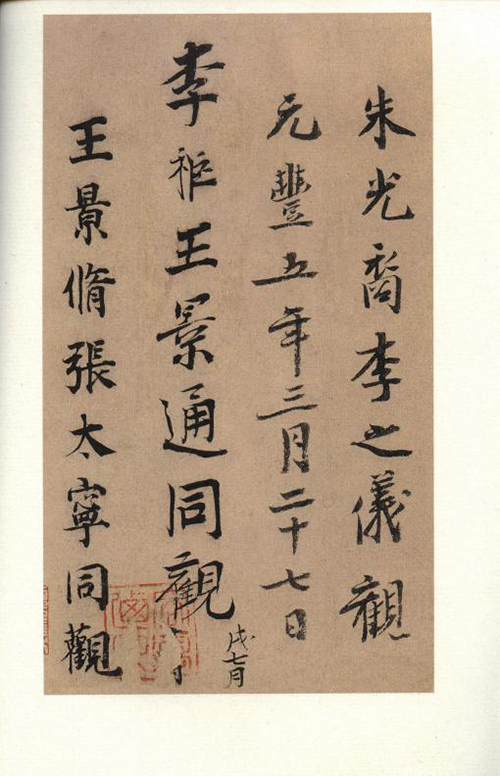 朱光裔李之儀觀
元豐五年三月二十七日
李祉王景通同觀
戊七月
王景脩張太寧同觀